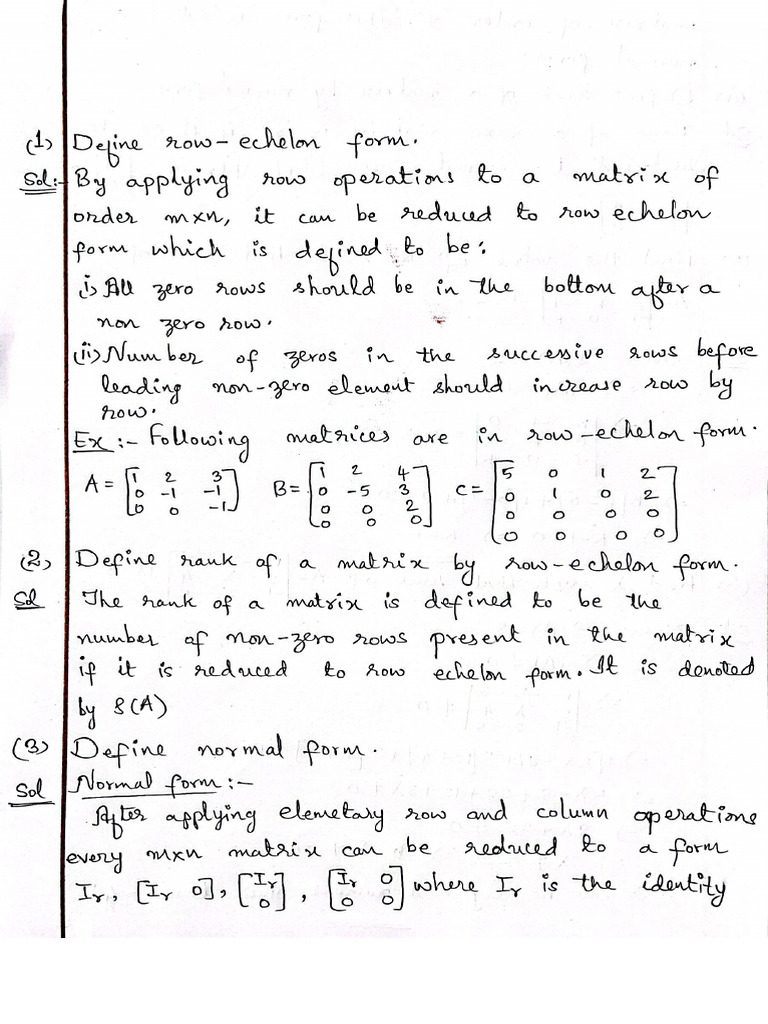 (1) Define row-echelon form.
Sol:- By applying row operations to a matrix of
order m×n, it can be reduced to row echelon
form which is defined to be:
i) All zero rows should be in the bottom after a
non zero row.
(ii) Number of zeros in the successive rows before
leading non-zero element should increase row by
row.
Ex :- Following matrices are in row-echelon form.
A = [1 2 3; 0 -1 -1; 0 0 -1] B = [1 2 4; 0 -5 3; 0 0 2; 0 0 0] C = [5 0 1 2; 0 1 0 2; 0 0 0 0; 0 0 0 0]
(2) Define rank of a matrix by row-echelon form.
Sol The rank of a matrix is defined to be the
number of non-zero rows present in the matrix
if it is reduced to row echelon form. It is denoted
by ρ(A)
(3) Define normal form.
Sol Normal form :-
After applying elemetary row and column operations
every m×n matrix can be reduced to a form
Ir, [Ir 0], [Ir; 0], [Ir 0; 0 0] where Ir is the identity